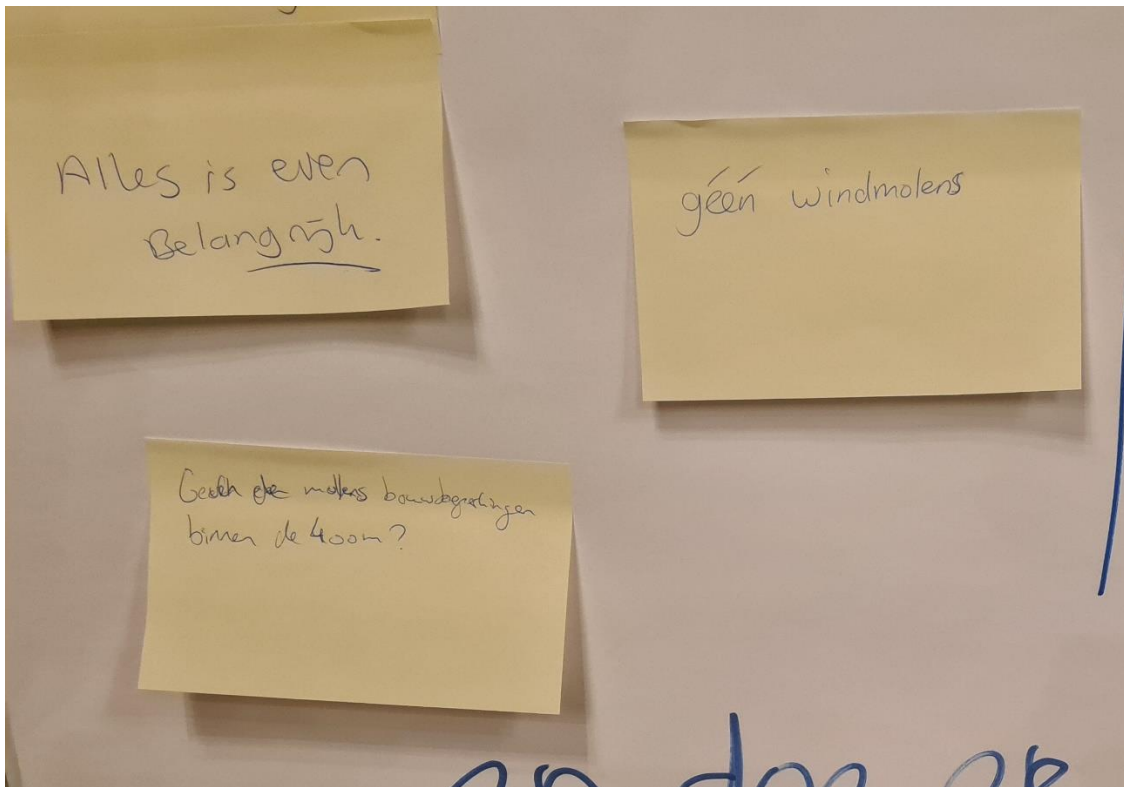 Alles is even
Belangrijk.
géén windmolens
Geven de molens bouwbeperkingen
binnen de 400m?